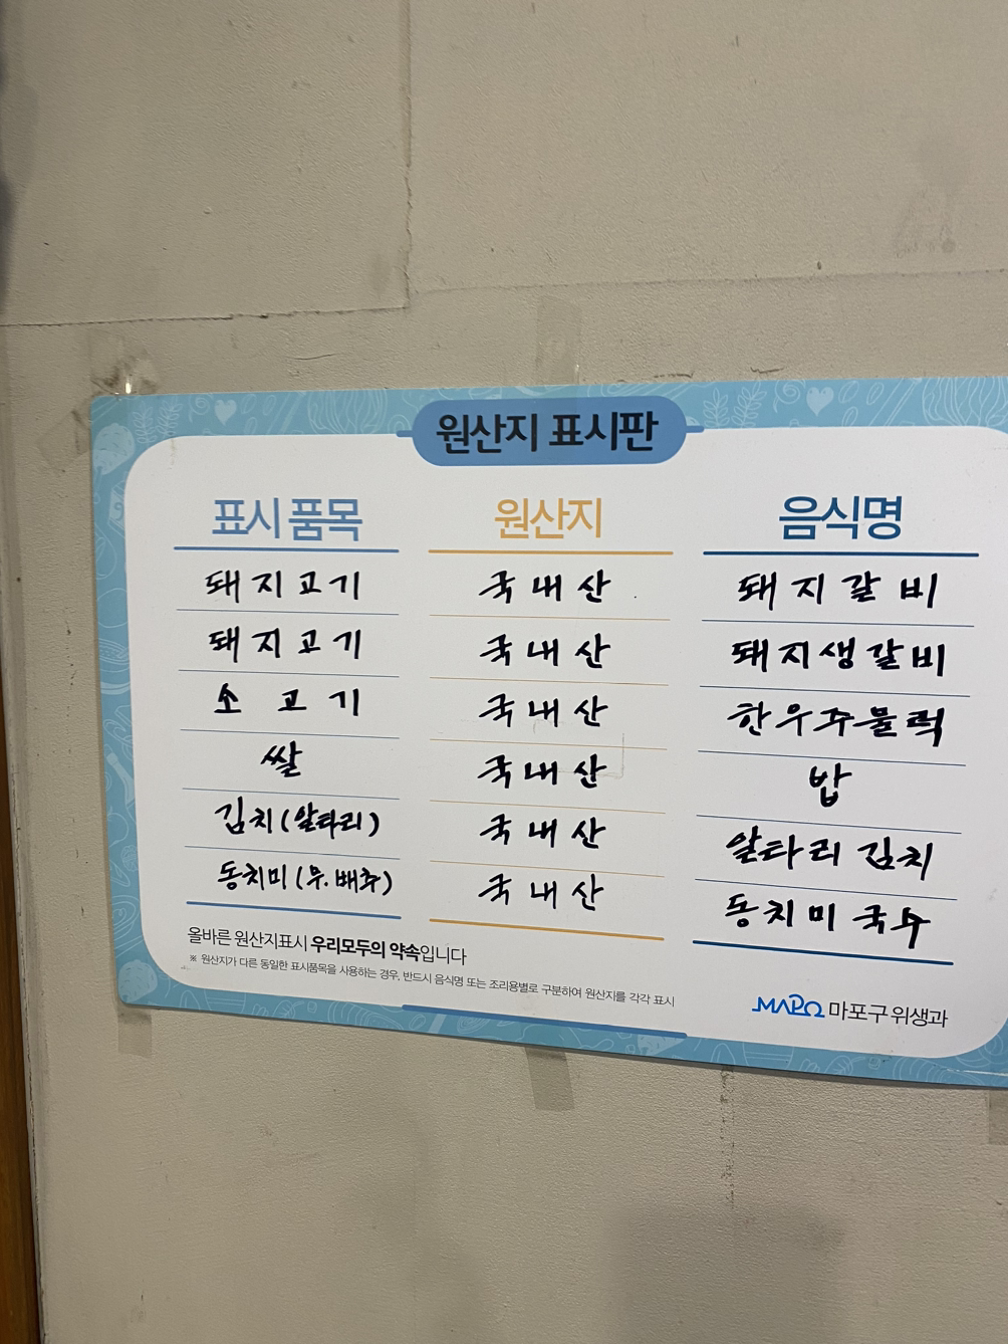 원산지 표시판
표시 품목 원산지 음식명
돼지고기 국내산 돼지갈비
돼지고기 국내산 돼지생갈비
소고기 국내산 한우주물럭
쌀 국내산 밥
김치(알타리) 국내산 알타리 김치
동치미(무.배추) 국내산 동치미 국수
올바른 원산지표시 우리모두의 약속입니다
※ 원산지가 다른 동일한 표시품목을 사용하는 경우, 반드시 음식명 또는 조리용별로 구분하여 원산지를 각각 표시
MAPO 마포구 위생과